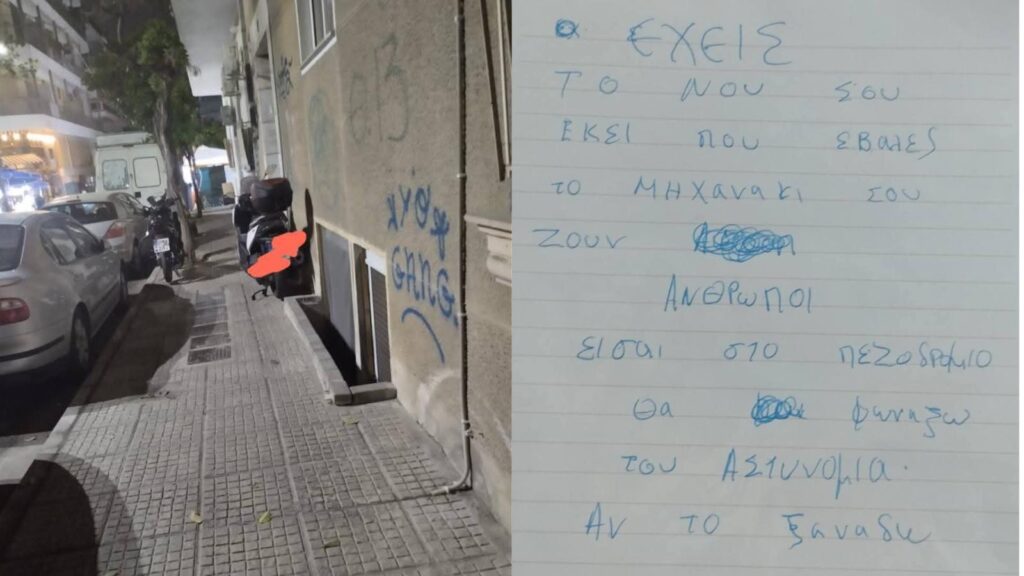 e.13
GANG.
ΕΧΕΙΣ
ΤΟ ΝΟΥ ΣΟΥ
ΕΚΕΙ ΠΟΥ ΕΒΑΛΕΣ
ΤΟ ΜΗΧΑΝΑΚΙ ΣΟΥ
ΖΟΥΝ
ΑΝΘΡΩΠΟΙ
ΕΙΣΑΙ ΣΤΟ ΠΕΖΟΔΡΟΜΙΟ
ΘΑ ΦΩΝΑΞΩ
ΤΟΥ ΑΣΤΥΝΟΜΙΑ.
ΑΝ ΤΟ ΞΑΝΑΔΩ